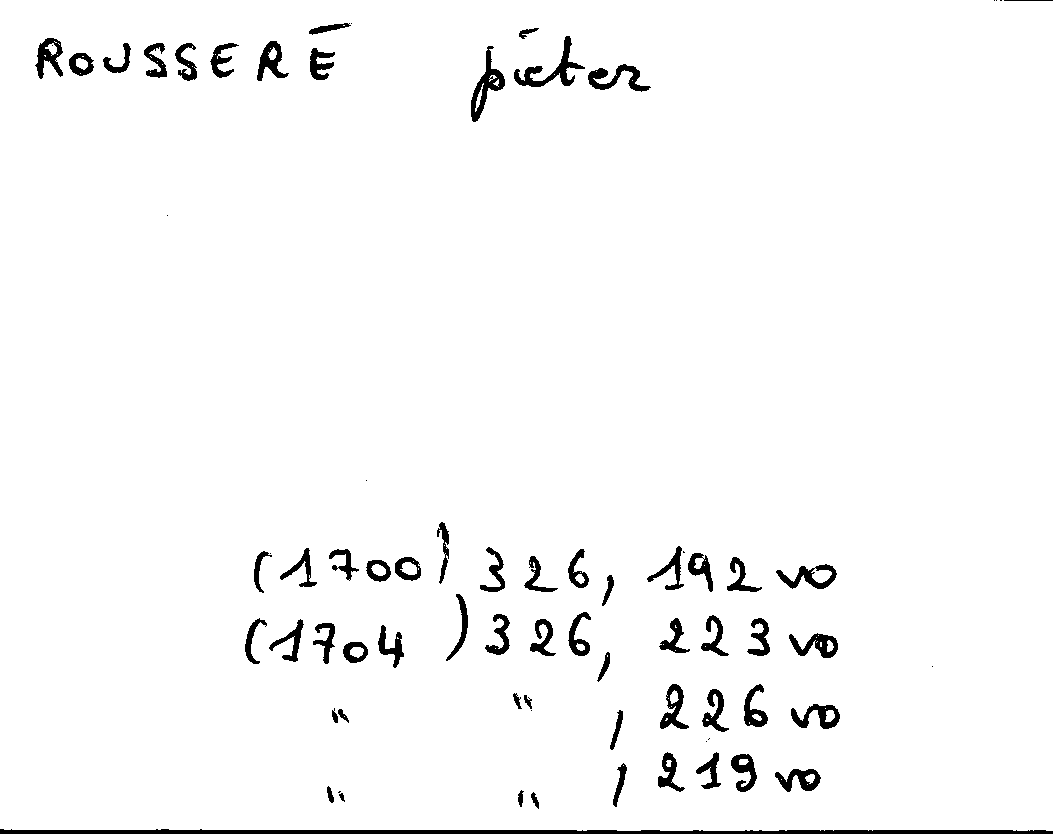 ROUSSERÉ pieter
(1700) 326, 192 vo
(1704) 326, 223 vo
" " , 226 vo
" " , 219 vo